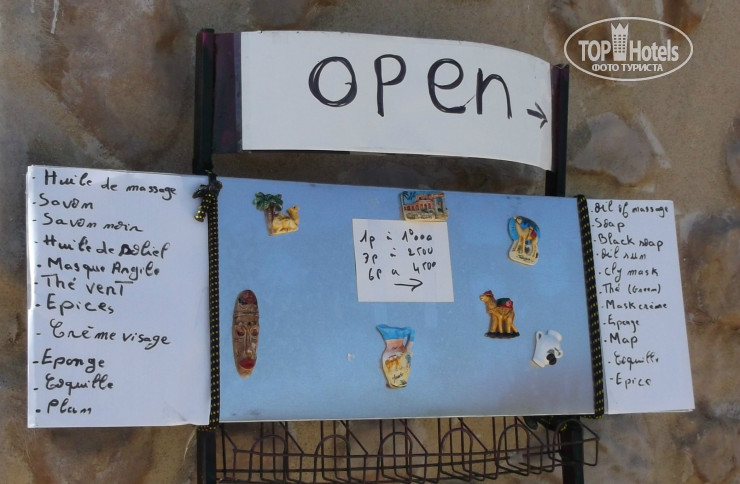 TOP Hotels
ФОТО ТУРИСТА
open →
- Huile de massage
- Savon
- Savon noir
- Huile de soliel
- Masque Angile
- Thé vent
- Epices
- Crème visage
- Eponge
- Coquille
- Plan
1p à 1000
3p à 2500
6p a 4500
→
- oil of massage
- Soap
- Black soap
- oil sun
- Cly mask
- Thé (Green)
- Mask crème
- Eponge
- Map
- Coquille
- Epice